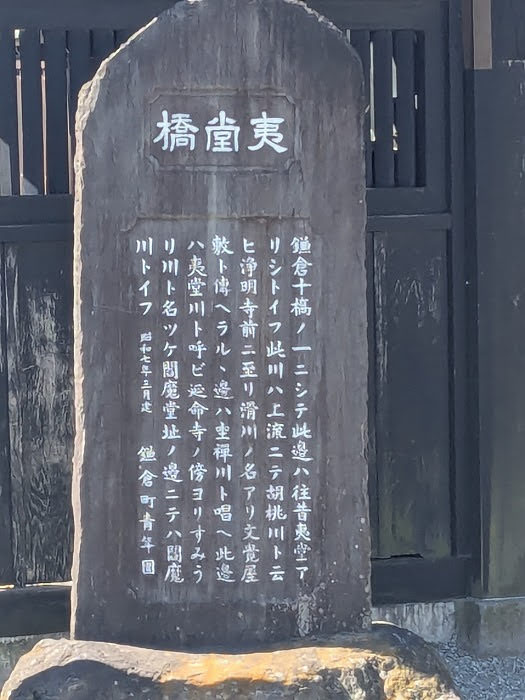 夷堂橋
鎌倉十橋ノ一ニシテ此邊ハ往昔夷堂ア
リシトイフ此川ハ上流ニテ胡桃川ト云
ヒ浄明寺前ニ至リ滑川ノ名アリ文覺屋
敷ト傳ヘラルヽ邊ハ坐禪川ト唱ヘ此邊
ハ夷堂川ト呼ビ延命寺ノ傍ヨリすみう
リ川ト名ツケ閻魔堂址ノ邊ニテハ閻魔
川トイフ 昭和七年三月建 鎌倉町青年團